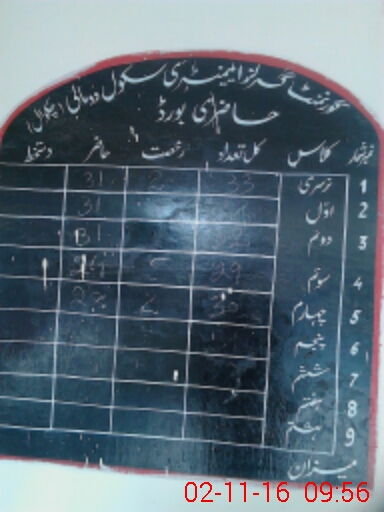 گورنمنٹ گرلز ایلیمنٹری سکول دومالی (چکوال)
حاضری بورڈ
نمبر شمار کلاس کل تعداد رخصت حاضر دستخط
1 نرسری 33 2 31
2 اوّل 31
3 دوئم 31
4 سوئم 29
5 چہارم
6 پنجم
7 ششم
8 ہفتم
9 ہشتم
میزان
02-11-16 09:56